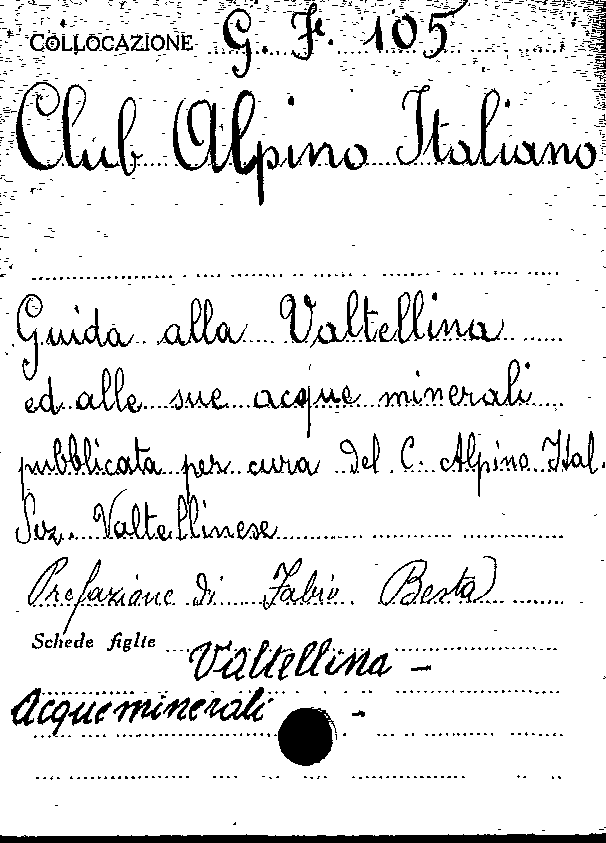 COLLOCAZIONE G. F. 105
Club Alpino Italiano
Guida alla Valtellina
ed alle sue acque minerali
pubblicata per cura del C. Alpino Ital.
Sez. Valtellinese
Prefazione di Fabio Besta
Schede figlie Valtellina -
Acque minerali -